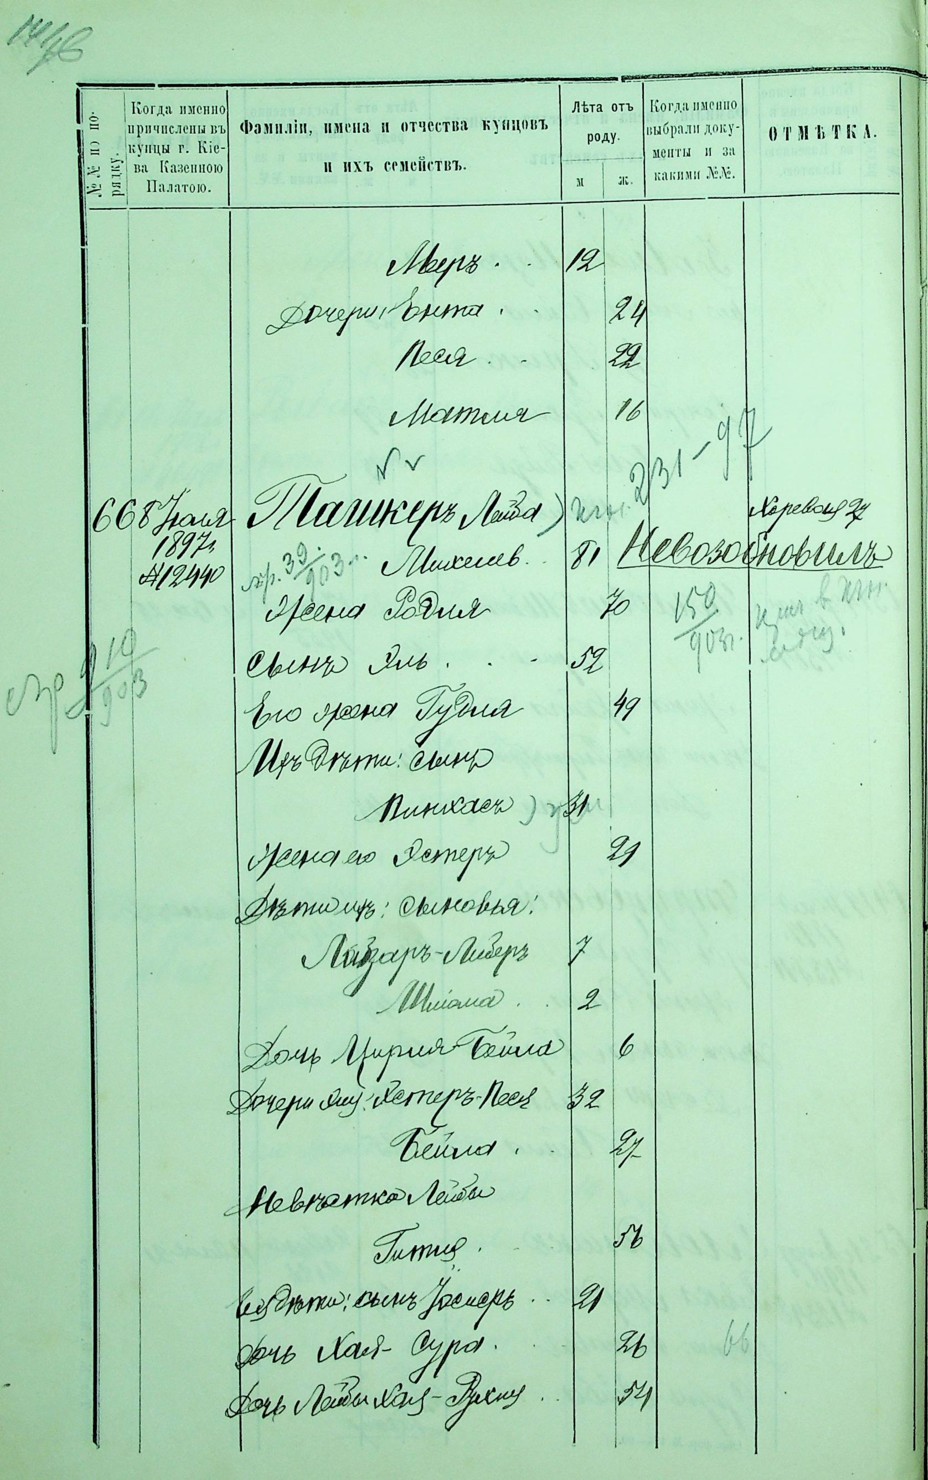 №№ по по-
рядку.
Когда именно
причислены въ
купцы г. Кіе-
ва Казенною
Палатою.
Фамиліи, имена и отчества купцовъ
и ихъ семействъ.
Лѣта отъ
роду.
м ж.
Когда именно
выбрали доку-
менты и за
какими №№.
ОТМѢТКА.
Меръ 12
Дочери: Ента 24
Песя 22
Матля 16
231-97
66 8 Іюля Ташкеръ Лейба) Хоревая 27
1897г. Михелев. 81 Невозобновилъ
№12440 39/903
Жена Родля 70 150/903г.
Сынъ Эль 52
910/903
Его жена Гудля 49
Ихъ дѣти: сынъ
Пинхасъ 31
Жена его Эстеръ 29
Дѣти ихъ: сыновья:
Лейзаръ-Либеръ 7
Шлома 2
Дочь Цирля-Бейла 6
Дочери Эли: Эстеръ-Песя 32
Бейла 27
Невѣстка Лейбы
Гитля 56
Ея дѣти: сынъ Іосиеръ 21
Дочь Хая-Сура 26
66
Дочь Лейбы Хая-Рухля 54